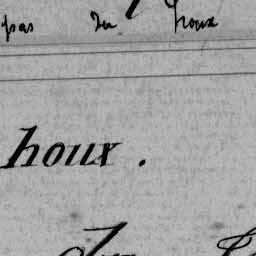 pas du houx
houx .